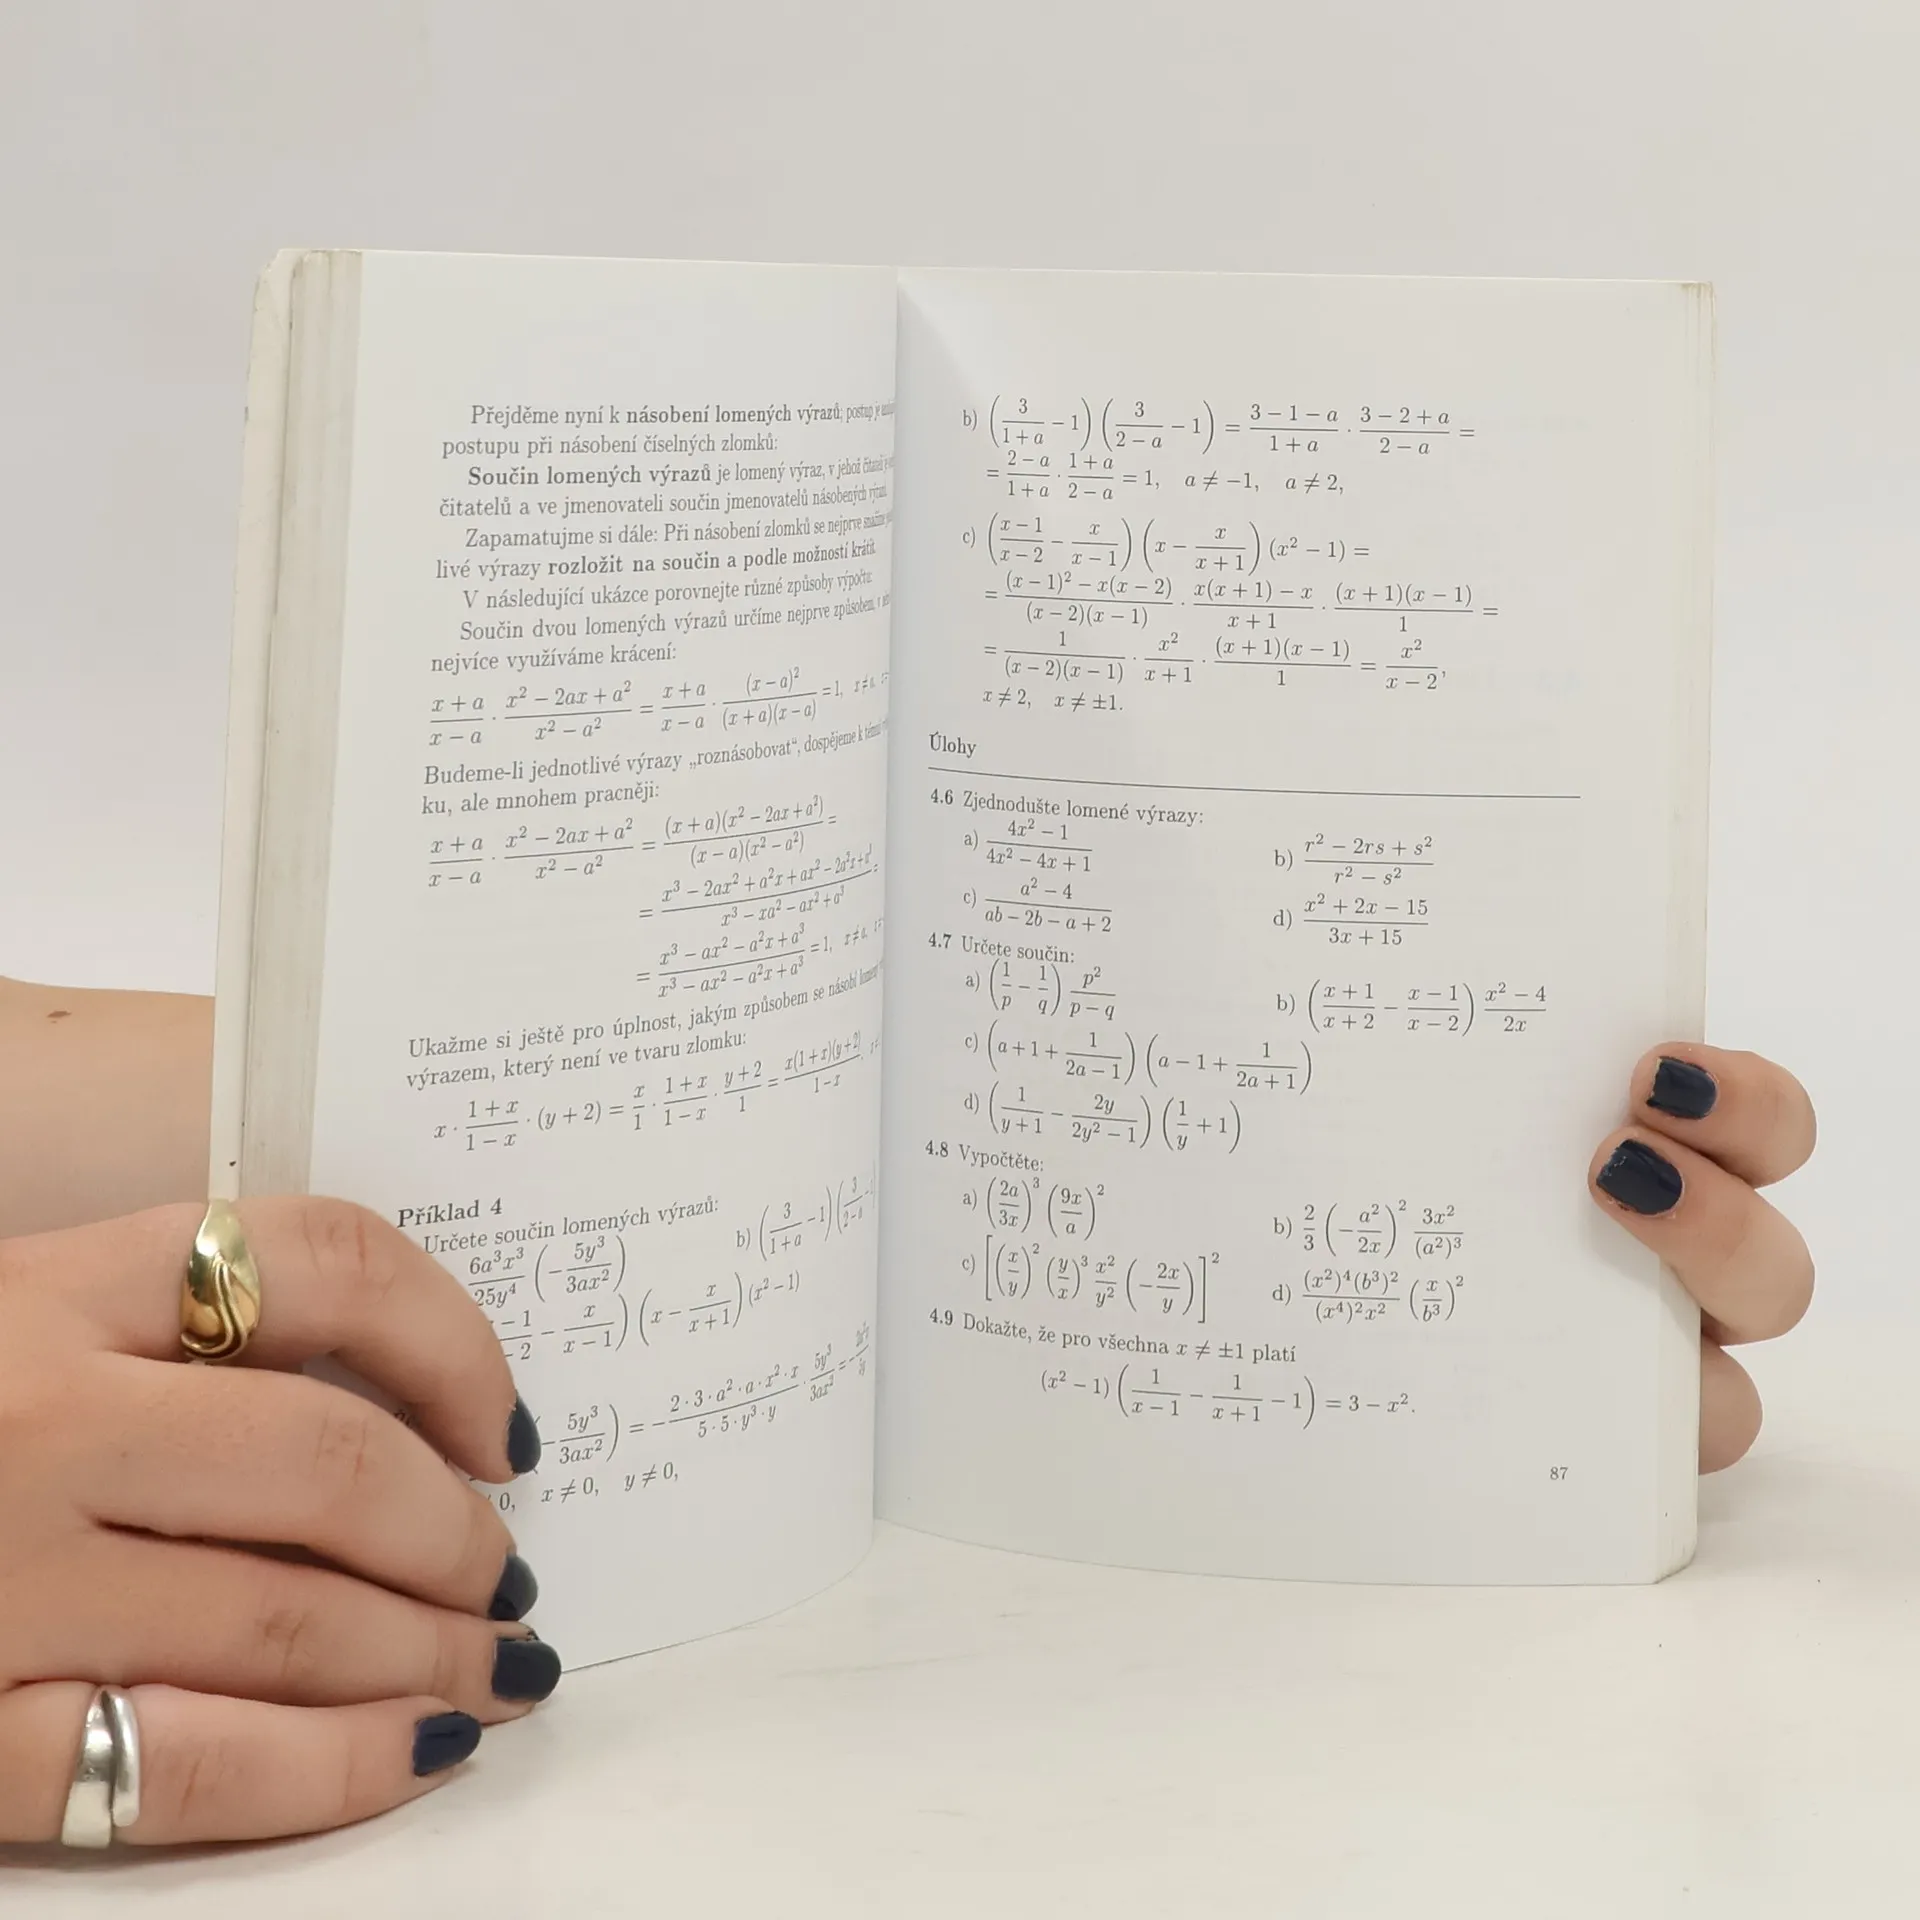 Přejděme nyní k násobení lomených výrazů; postup je
postupu při násobení číselných zlomků:
Součin lomených výrazů je lomený výraz, v jehož čitateli je
čitatelů a ve jmenovateli součin jmenovatelů násobených výrazů.
Zapamatujme si dále: Při násobení zlomků se nejprve snažíme
livé výrazy rozložit na součin a podle možností krátit.
V následující ukázce porovnejte různé způsoby výpočtu:
Součin dvou lomených výrazů určíme nejprve způsobem, v
nejvíce využíváme krácení:
(x + a)/(x − a) · (x² − 2ax + a²)/(x² − a²) = (x + a)/(x − a) · (x − a)²/((x + a)(x − a)) = 1, x ≠ a,
Budeme-li jednotlivé výrazy „roznásobovat“, dospějeme k
ku, ale mnohem pracněji:
(x + a)/(x − a) · (x² − 2ax + a²)/(x² − a²) = ((x + a)(x² − 2ax + a²))/((x − a)(x² − a²)) =
= (x³ − 2ax² + a²x + ax² − 2a²x + a³)/(x³ − xa² − ax² + a³) =
= (x³ − ax² − a²x + a³)/(x³ − ax² − a²x + a³) = 1, x ≠ a,
Ukažme si ještě pro úplnost, jakým způsobem se násobí lomený
výrazem, který není ve tvaru zlomku:
x · (1 + x)/(1 − x) · (y + 2) = x/1 · (1 + x)/(1 − x) · (y + 2)/1 = (x(1 + x)(y + 2))/(1 − x),
Příklad 4
Určete součin lomených výrazů:
6a³x³/25y⁴ (−5y³/3ax²) b) (3/(1 + a) − 1)(3/(2 − a) − 1)
− 1/− 2 − x/(x − 1)) (x − x/(x + 1)) (x² − 1)
(−5y³/3ax²) = −(2 · 3 · a² · a · x² · x)/(5 · 5 · y³ · y) · 5y³/3ax² = −
0, x ≠ 0, y ≠ 0,
b) (3/(1 + a) − 1) (3/(2 − a) − 1) = (3 − 1 − a)/(1 + a) · (3 − 2 + a)/(2 − a) =
= (2 − a)/(1 + a) · (1 + a)/(2 − a) = 1, a ≠ −1, a ≠ 2,
c) ((x − 1)/(x − 2) − x/(x − 1)) (x − x/(x + 1)) (x² − 1) =
= ((x − 1)² − x(x − 2))/((x − 2)(x − 1)) · (x(x + 1) − x)/(x + 1) · ((x + 1)(x − 1))/1 =
= 1/((x − 2)(x − 1)) · x²/(x + 1) · ((x + 1)(x − 1))/1 = x²/(x − 2),
x ≠ 2, x ≠ ±1.
Úlohy
4.6 Zjednodušte lomené výrazy:
a) (4x² − 1)/(4x² − 4x + 1) b) (r² − 2rs + s²)/(r² − s²)
c) (a² − 4)/(ab − 2b − a + 2) d) (x² + 2x − 15)/(3x + 15)
4.7 Určete součin:
a) (1/p − 1/q) p²/(p − q) b) ((x + 1)/(x + 2) − (x − 1)/(x − 2)) (x² − 4)/2x
c) (a + 1 + 1/(2a − 1)) (a − 1 + 1/(2a + 1))
d) (1/(y + 1) − 2y/(2y² − 1)) (1/y + 1)
4.8 Vypočtěte:
a) (2a/3x)³ (9x/a)² b) 2/3 (−a²/2x)² 3x²/(a²)³
c) [(x/y)² (y/x)³ x²/y² (−2x/y)]² d) ((x²)⁴(b³)²)/((x⁴)²x²) (x/b³)²
4.9 Dokažte, že pro všechna x ≠ ±1 platí
(x² − 1) (1/(x − 1) − 1/(x + 1) − 1) = 3 − x².
87